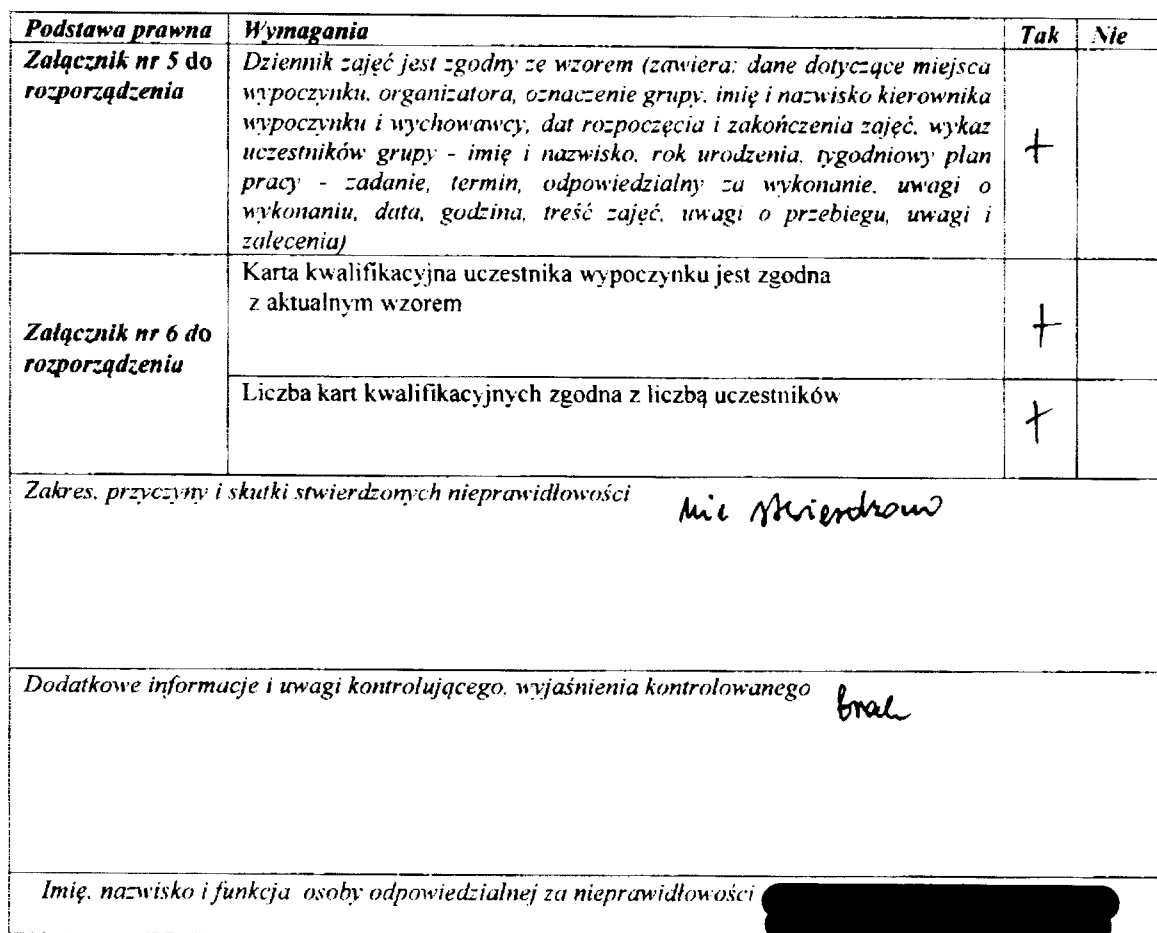 Podstawa prawna Wymagania Tak Nie
Załącznik nr 5 do rozporządzenia
Dziennik zajęć jest zgodny ze wzorem (zawiera: dane dotyczące miejsca
wypoczynku, organizatora, oznaczenie grupy, imię i nazwisko kierownika
wypoczynku i wychowawcy, dat rozpoczęcia i zakończenia zajęć, wykaz
uczestników grupy - imię i nazwisko, rok urodzenia, tygodniowy plan
pracy - zadanie, termin, odpowiedzialny za wykonanie, uwagi o
wykonaniu, data, godzina, treść zajęć, uwagi o przebiegu, uwagi i
zalecenia)
+
Załącznik nr 6 do
rozporządzenia
Karta kwalifikacyjna uczestnika wypoczynku jest zgodna
z aktualnym wzorem
+
Liczba kart kwalifikacyjnych zgodna z liczbą uczestników
+
Zakres, przyczyny i skutki stwierdzonych nieprawidłowości nie stwierdzono
Dodatkowe informacje i uwagi kontrolującego, wyjaśnienia kontrolowanego brak
Imię, nazwisko i funkcja osoby odpowiedzialnej za nieprawidłowości